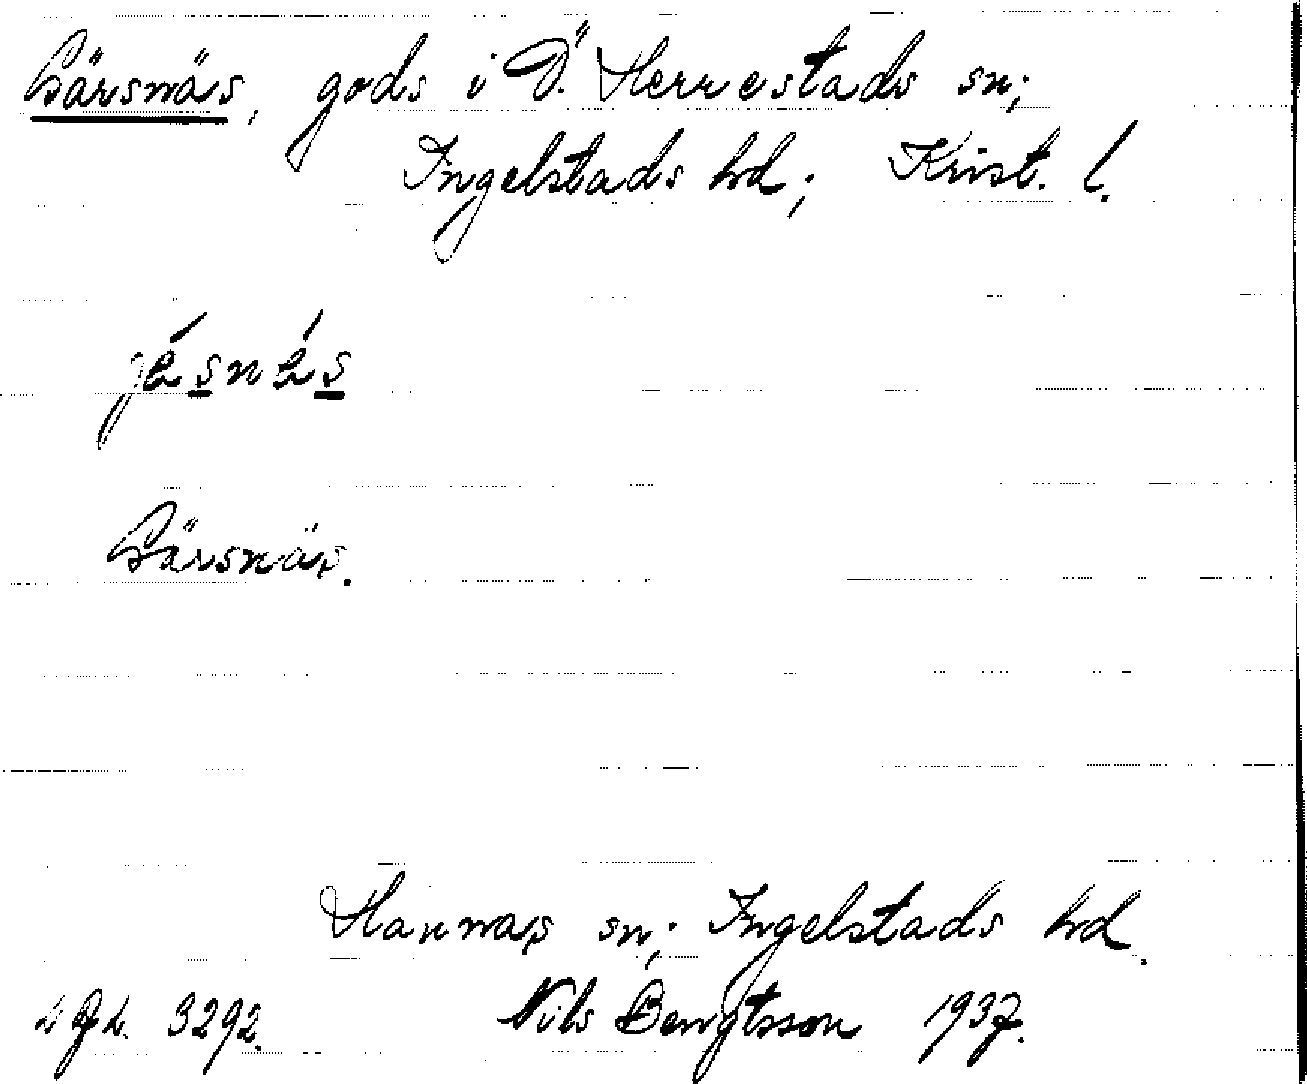 Gärsnäs, gods i Ö. Herrestads sn;
Ingelstads hd; Krist. l.
Gärsnäs.
Hannas sn; Ingelstads hd.
3292. Nils Bengtsson 1937.